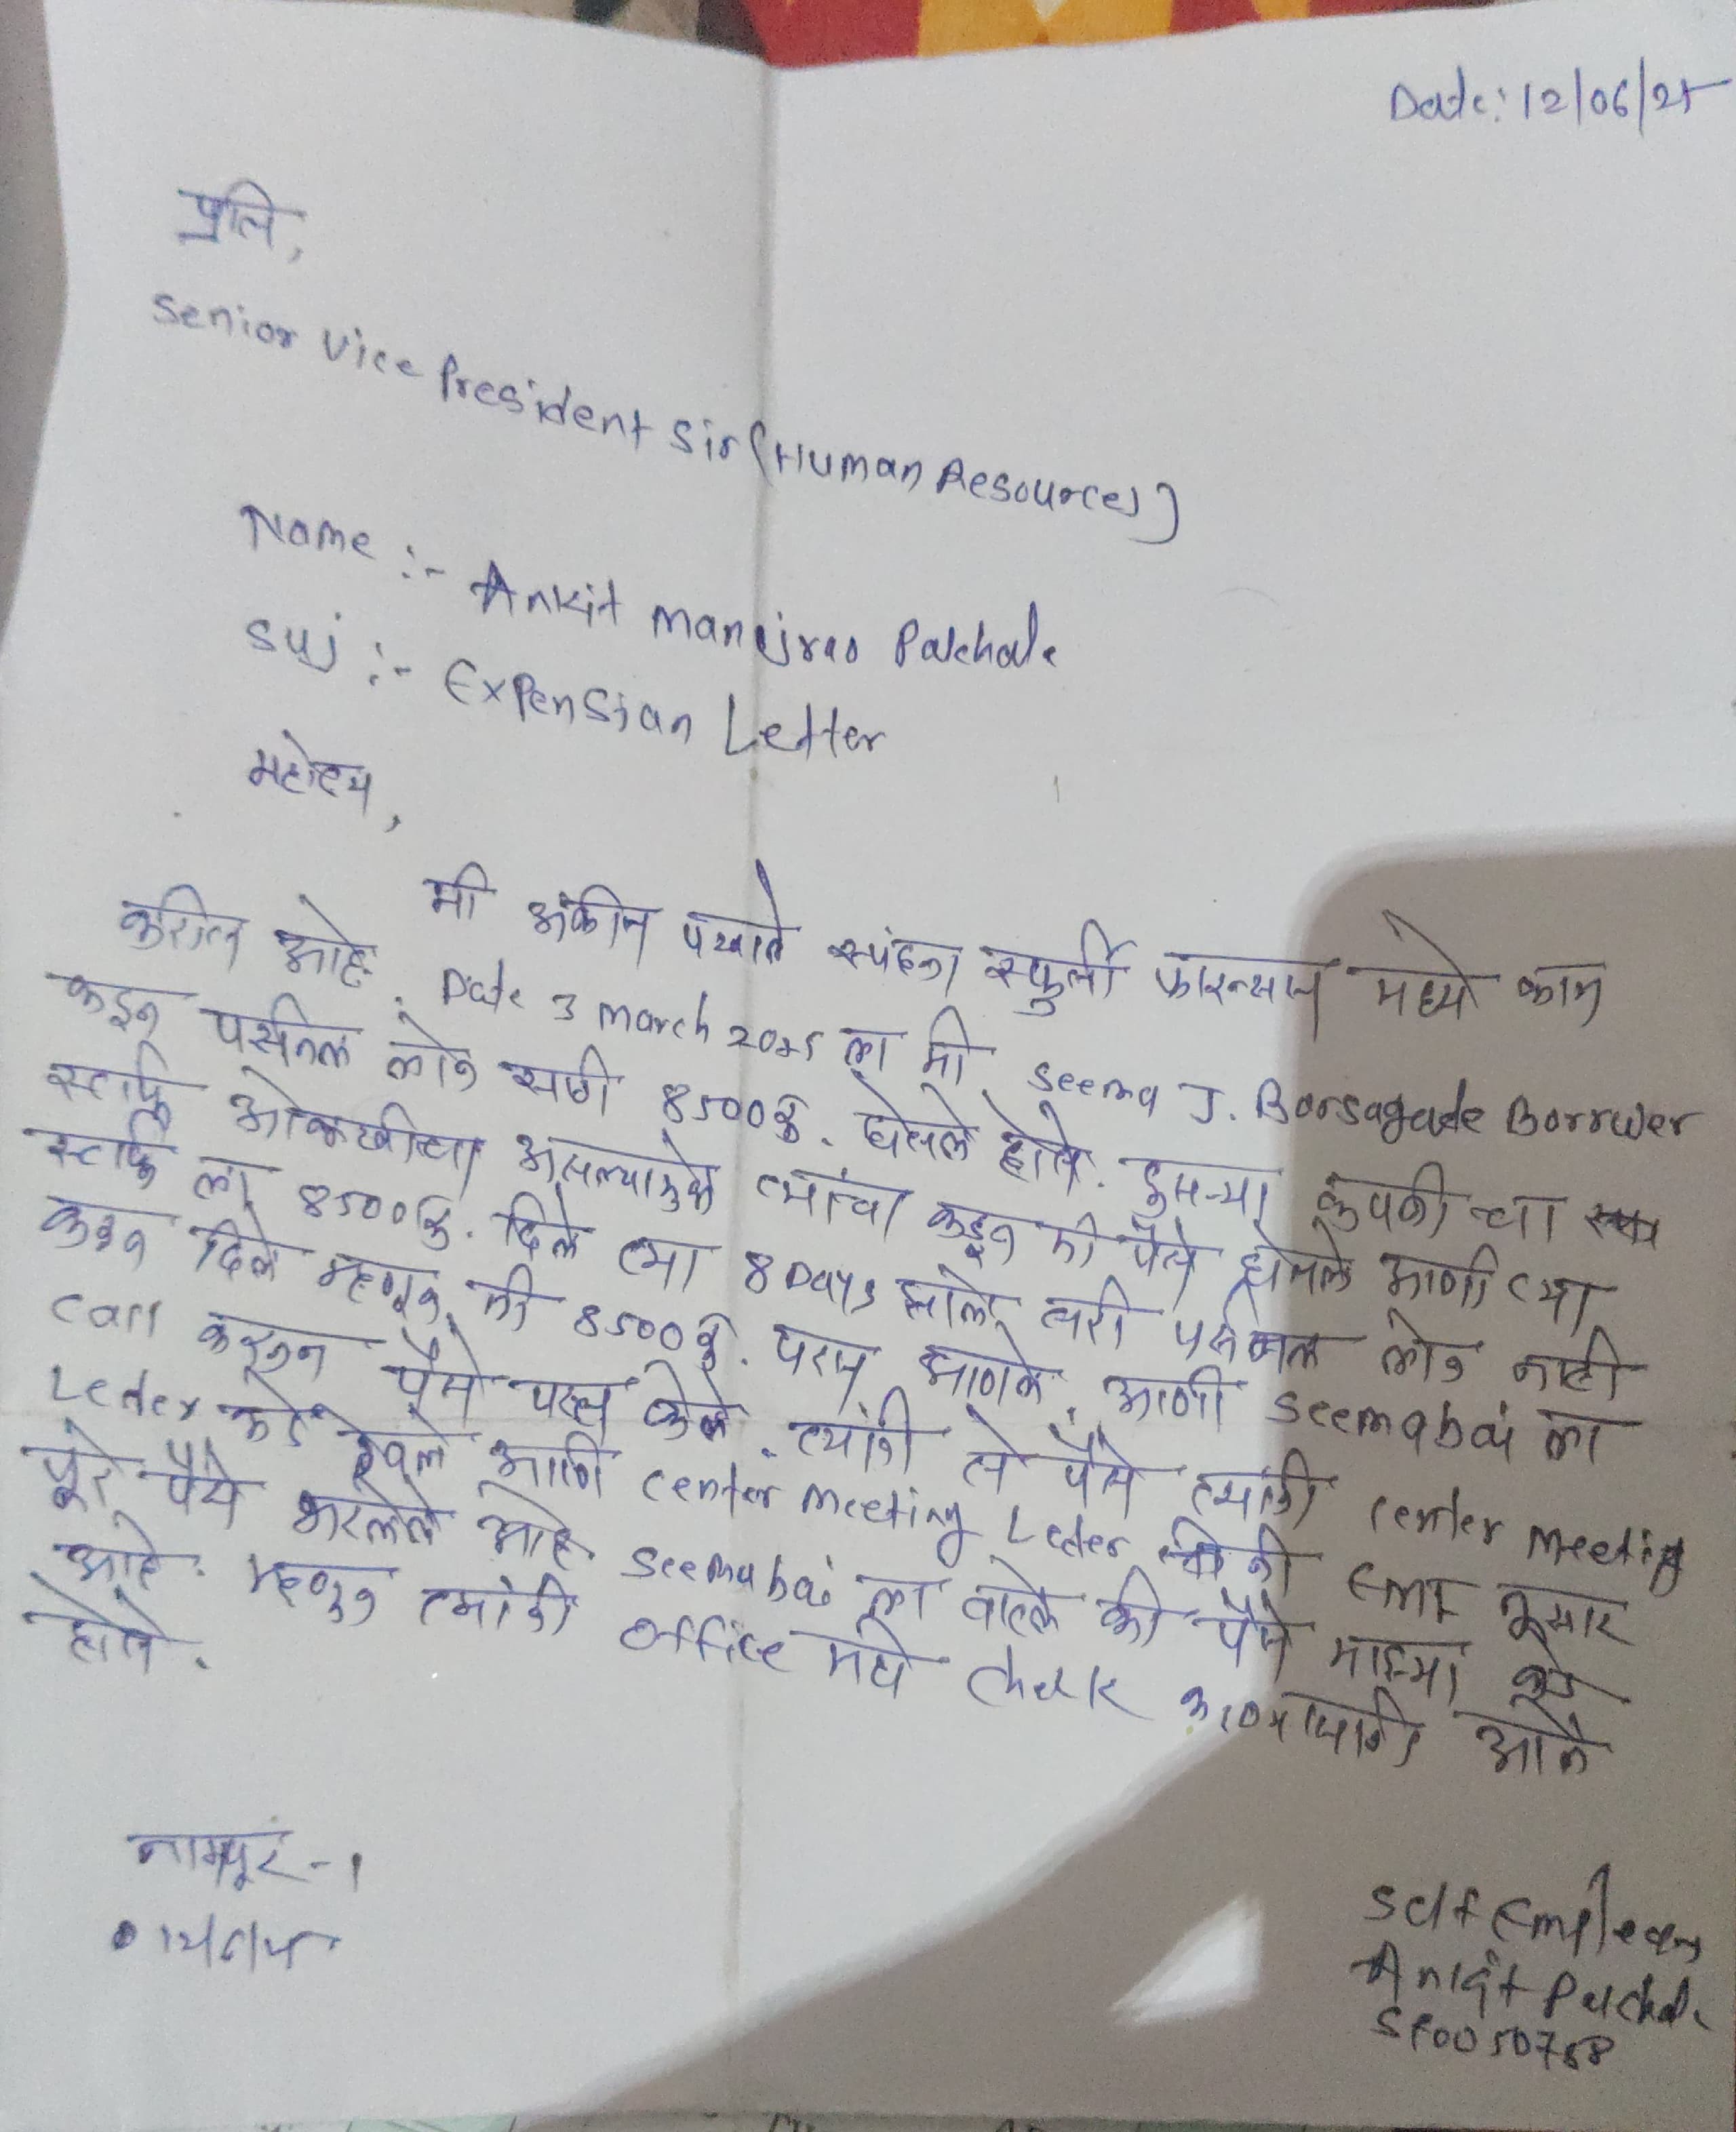 Date: 12/06/25
प्रति,
Senior Vice President Sir (Human Resources)
Name :- Ankit Manojrao Pakhale
Suj :- Expension Letter
महोदय,
मी अंकीत पखाले स्पंदना स्फुर्ती फायन्सास मध्ये काम
करीत आहे. Date 3 march 2025 ला मी Seema J. Borsagade Borrwer
कडून पर्सनल लोन साठी 8500रु. घेतले होते. दुसऱ्या कंपनी च्या
स्टाफ ओळखीचा असल्यामुळे त्यांचा कडून मी पैसे घेतले आणी त्या
स्टाफ ला 8500रु. दिले त्या 8 Days झाले तरी पर्सनल लोन नाही
करून दिले म्हणून मी 8500रु. परत मागले. आणी Seemabai ला
Call करून पैसे परत केले. त्यांनी ते पैसे त्यांनी center meeting
Leder कडे ठेवले आणि center meeting Leder नी EMI नुसार
पुरे पैसे भरलेले आहे Seemabai ला वाटले की पैसे माझ्या कडे
आहे. म्हणून त्यांनी office मध्ये check करण्यासाठी आले
होते.
नागपूर - 1
Self Employ
Ankit Pakhale
SF0050788